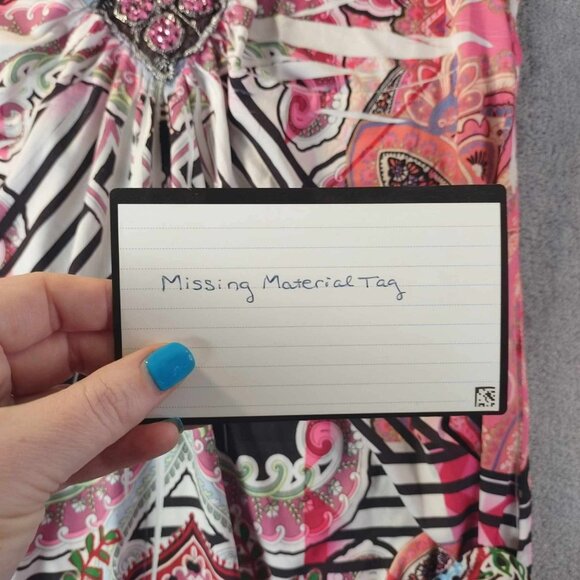 Missing Material Tag